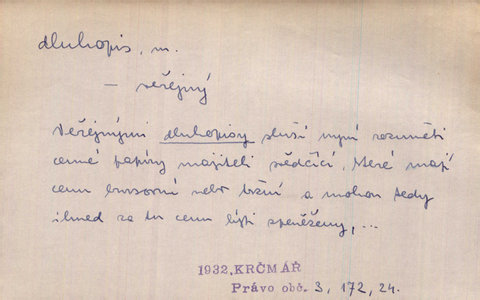 dluhopis, m.
— veřejný
Veřejnými dluhopisy sluší nyní rozuměti
cenné papíry majiteli svědčící, které mají
cenu bursovní nebo tržní a mohou tedy
ihned za tu cenu býti zpeněženy, ...
1932, KRČMÁŘ
Právo obč. 3, 172, 24.